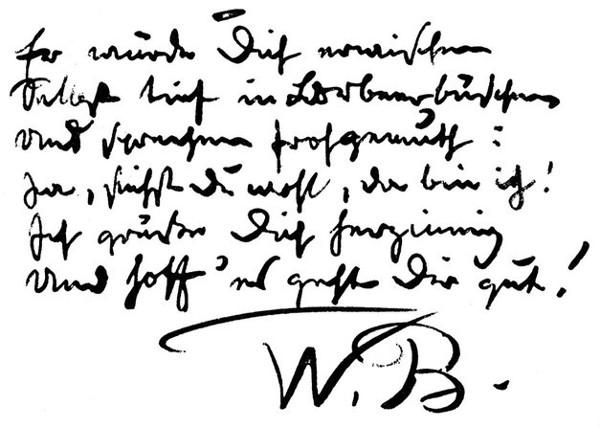 Er würde Dich erwischen
Selbst tief in Lorbeerbüschen
Und sprechen frohgemuth:
Ja, siehst Du wohl, da bin ich!
Ich grüße Dich herzinnig
Und hoff' es geht Dir gut!
W. B.